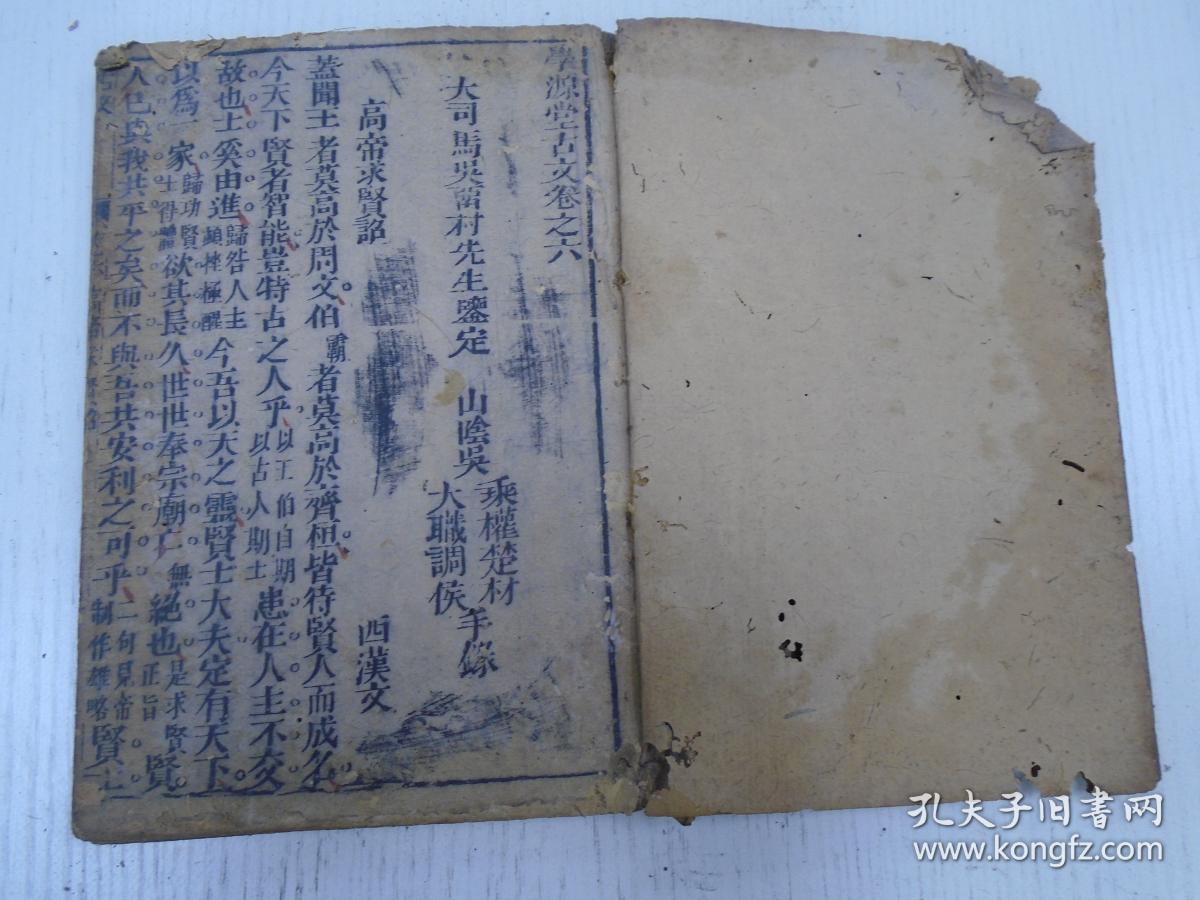 學源堂古文卷之六
大司馬吳留村先生鑒定 山陰吳
乘權楚材
大職調侯
手錄
高帝求賢詔 西漢文
蓋聞王者莫高於周文伯霸者莫高於齊桓皆待賢人而成名
今天下賢者智能豈特古之人乎以王伯自期以古人期士患在人主不交
故也士奚由進歸咎人主頻挫極醒今吾以天之靈賢士大夫定有天下
以為一家歸功賢士得體欲其長久世世奉宗廟亡無絕也是求賢正旨賢
人已與我共平之矣而不與吾共安利之可乎二句見帝制作雄略賢士
孔夫子旧书网
www.kongfz.com